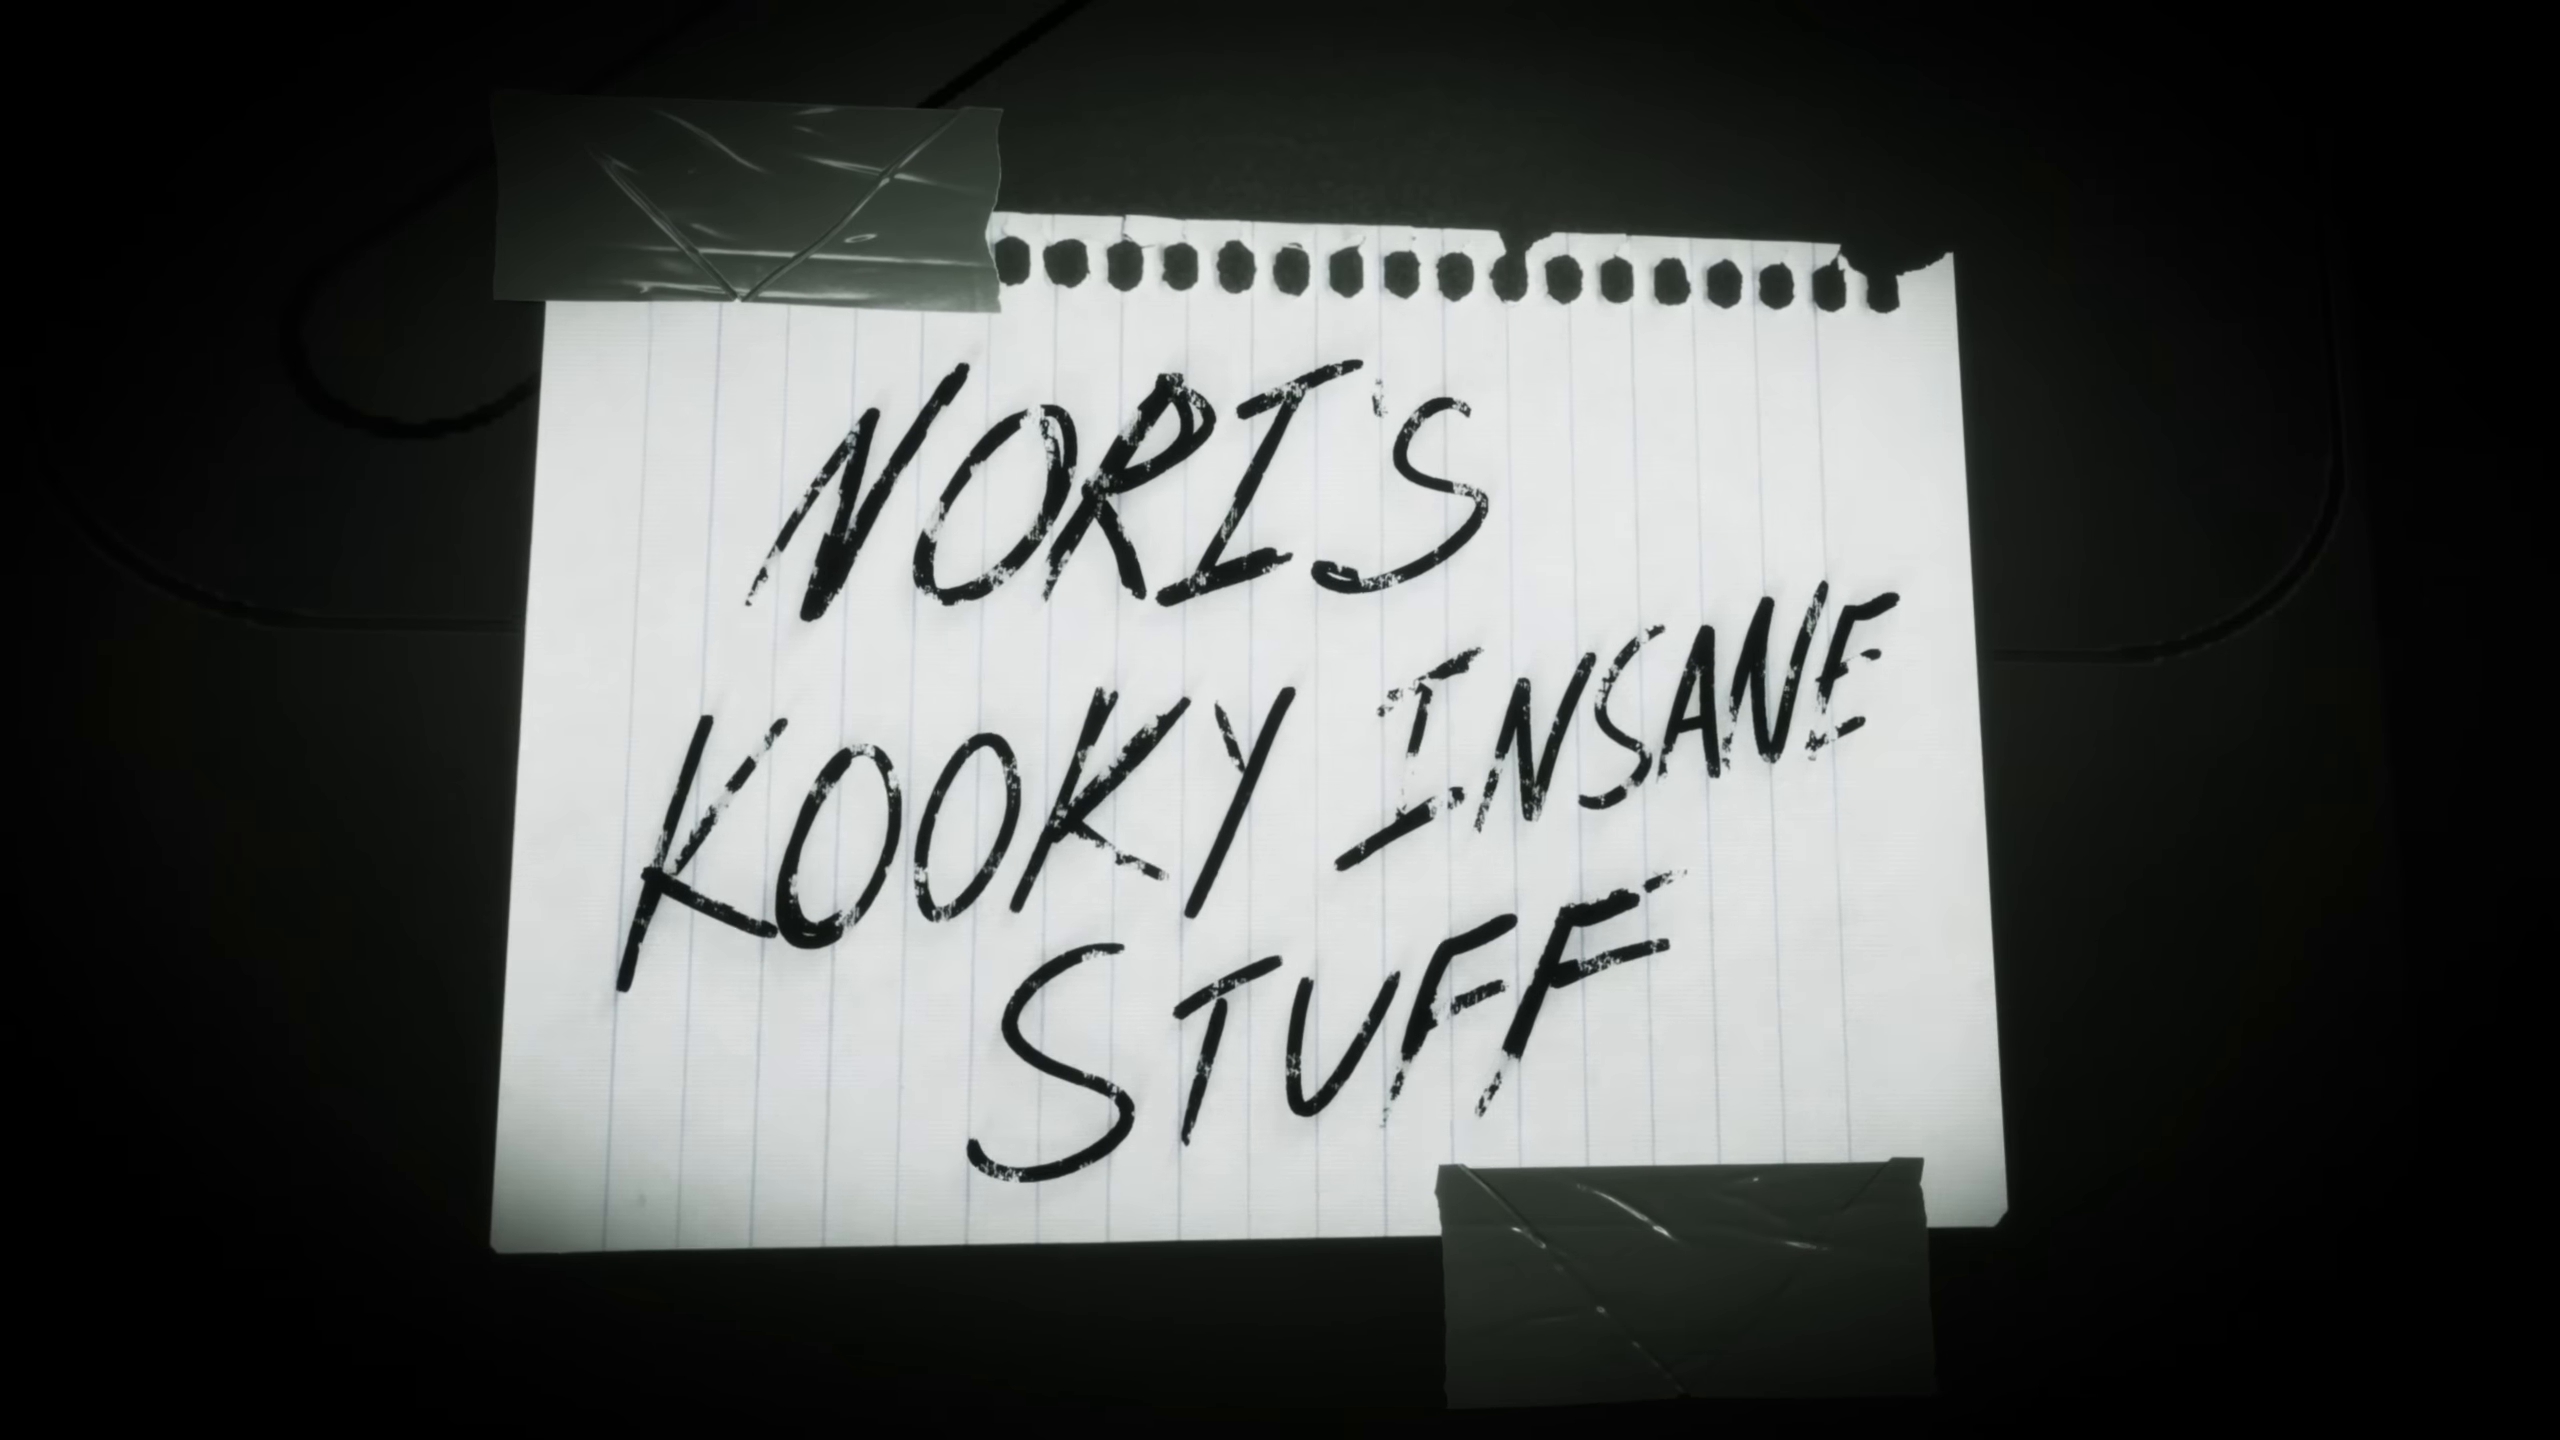 NORI'S
KOOKY INSANE
STUFF